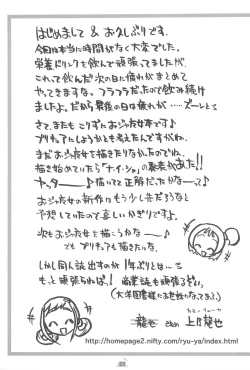 はじめまして & お久しぶりです。
今回は本当に時間がなく大変でした。
栄養ドリンクを飲んで頑張ってましたが、
これって飲んだ次の日に疲れがまとめて
やってきますな。フラフラだったので飲み続け
ましたよ。だから最後の日は疲れが……ズーンと
さて、またもこりずにおジャ女本です♪
プリキュアにしようかとも考えたんですがね。
まだおジャ女を描きたりなかったのでね。
描き始めていたら「ナ・イ・ショ」の発表があった!!
ヤッター♪描いてて正解だったかなーって♪
おジャ女の新作はもう少し先だろうなと
予想していたので嬉しいかぎりですよ。
次もおジャ女を描こうかなー♪
でもプリキュアも描きたいな。
しかし同人誌出すのが1年ぶりとは…
もっと頑張らねば! 商業誌も頑張るぞい。
龍也 こと 上乃龍也
http://homepage2.nifty.com/ryu-ya/index.html